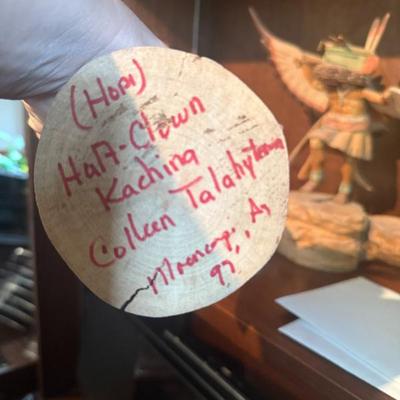 (HOPI)
Half-Clown
Kachina
Colleen Talahytewa
Moencopi, Az
97